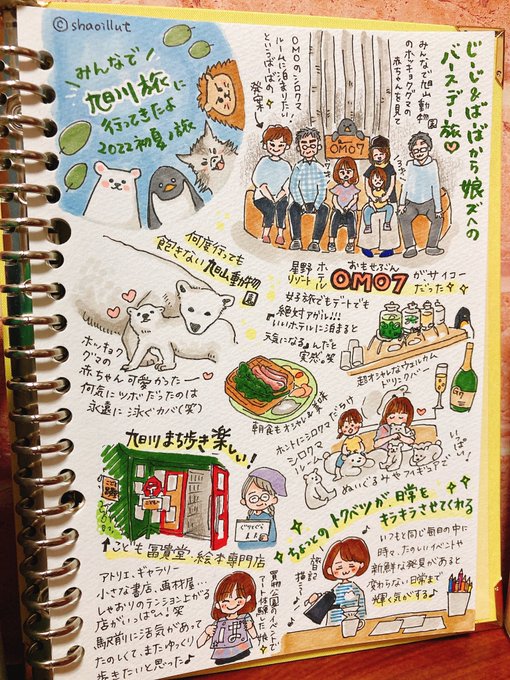 ©shaoillut
みんなで
旭川旅に
行ってきたよ
2022初夏の旅
じーじ&ばーばから娘ズへの
バースデー旅♡
みんなで旭山動物園
のホッキョクグマの
赤ちゃんを見て
OMOのシロクマ
ルームに泊まりたい!
というばーばの
発案☆
OMO7
何度行っても
飽きない旭山動物園
ホッキョク
グマの
赤ちゃん可愛かったー♡
何気にツボだったのは
永遠に泳ぐカバ(笑)
星野リゾート
ホテル
おもせぶん
OMO7が、サイコー
だった
好子旅でもデートでも
絶対アガル!!!
いいホテルに泊まると
元気になる♪んだと
実感。笑
超オシャレなウェルカム
ドリンクバー
朝食もオシャレ&美味
ホントにシロクマだらけ
シロクマ
ルーム
いっぱーい!
ぬいぐるみやフィギュアで
旭川まち歩き楽しい!
ぐりとぐら
↑こども冨貴堂・絵本専門店
アトリエ、ギャラリー
小さな書店、画材屋…
しゃおりのテンション上がる
店がいっぱい!笑
駅前に活気があって
たのしくて、またゆっくり
歩きたいと思った♪
買物公園のイベントで
アート体験した娘
ちょっとのトクベツが、日常を
キラキラさせてくれる
いつもと同じ毎日の中に
時々、たのしいイベントや
新鮮な発見があると
変わらない日常まで
輝く気がする♪